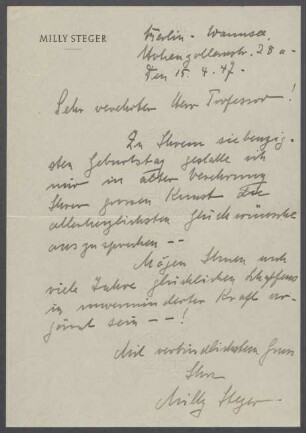 MILLY STEGER
Berlin - Wannsee,
Hohenzollernstr. 28 a.
Den 15. 4. 47.
Sehr verehrter Herr Professor!
Zu Ihrem siebenzig-
sten Geburtstag gestatte ich
mir in alter Verehrung
Ihrer grossen Kunst die
allerherzlichsten Glückwünsche
auszusprechen --
Mögen Ihnen noch
viele Jahre glücklichen Schaffens
in unverminderter Kraft ver-
gönnt sein --!
Mit verbindlichstem Gruss
Ihre
Milly Steger.